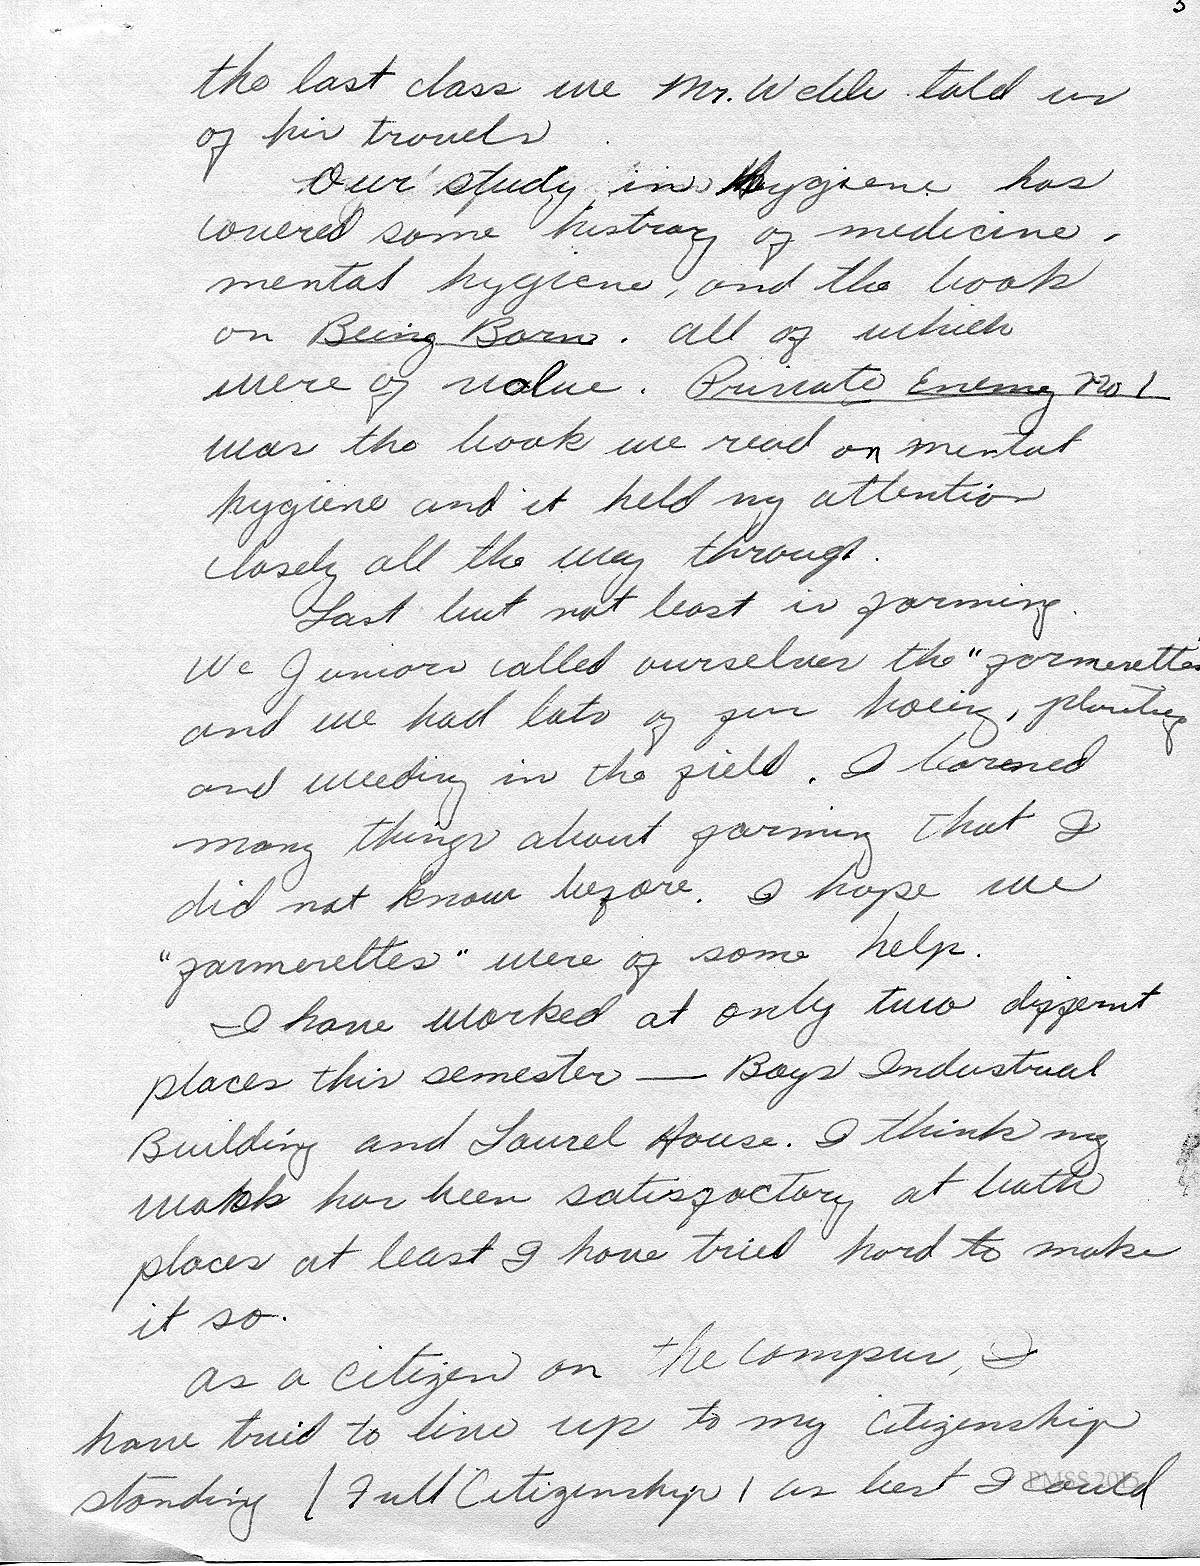 3
the last class we Mr. Webb told us
of his travels
Our study in Hygiene has
covered some histroy of medicine,
mental hygiene, and the book
on Being Born. All of which
were of value. Private Enemy No 1
was the book we read on mental
hygiene and it held my attention
closely all the way through.
Last but not least is farming.
We Juniors called ourselves the "farmerettes
and we had lots of fun hoeing, planting
and weeding in the field. I learned
many things about farming that I
did not know before. I hope we
"farmerettes" were of some help.
I have worked at only two different
places this semester — Boys Industrial
Building and Laurel House. I think my
work has been satisfactory at both
places at least I have tried hard to make
it so.
As a citizen on the campus, I
have tried to live up to my citizenship
standing (Full Citizenship) as best I could
PMSS 2015